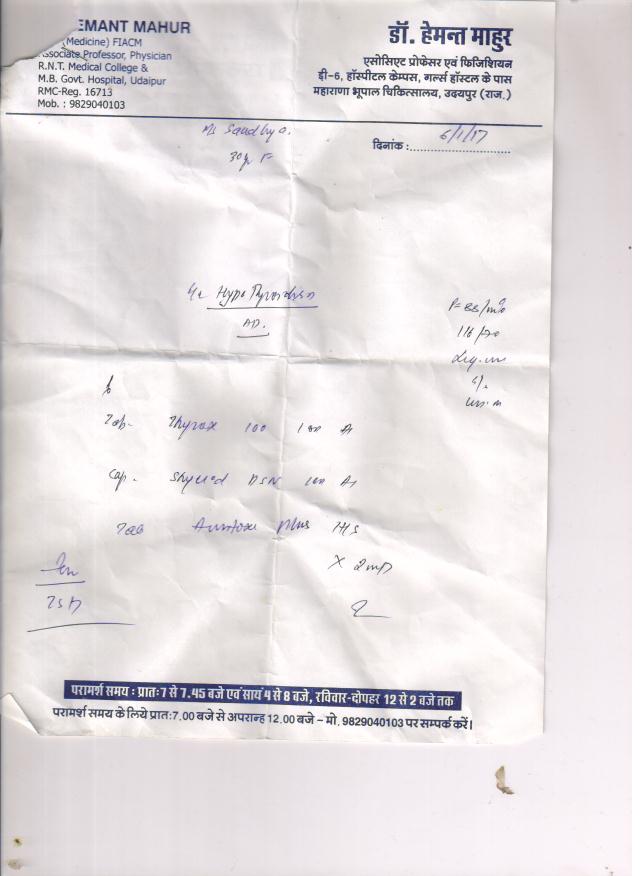 EMANT MAHUR
(Medicine) FIACM
Associate Professor, Physician
R.N.T. Medical College &
M.B. Govt. Hospital, Udaipur
RMC-Reg. 16713
Mob. : 9829040103
डॉ. हेमन्त माहुर
एसोसिएट प्रोफेसर एवं फिजिशियन
डी-6, हॉस्पीटल केम्पस, गर्ल्स हॉस्टल के पास
महाराणा भूपाल चिकित्सालय, उदयपुर (राज.)
दिनांक : 6/1/17
Ms Sandhya.
30yr F
Hypothyroidism
AD.
116/70
Tab- Thyrox 100
Cap. DSN
Tab Plus H/S
TSH
परामर्श समय : प्रातः7 से 7.45 बजे एवं सायं 4 से 8 बजे, रविवार-दोपहर 12 से 2 बजे तक
परामर्श समय के लिये प्रातः7.00 बजे से अपरान्ह 12.00 बजे – मो. 9829040103 पर सम्पर्क करें।